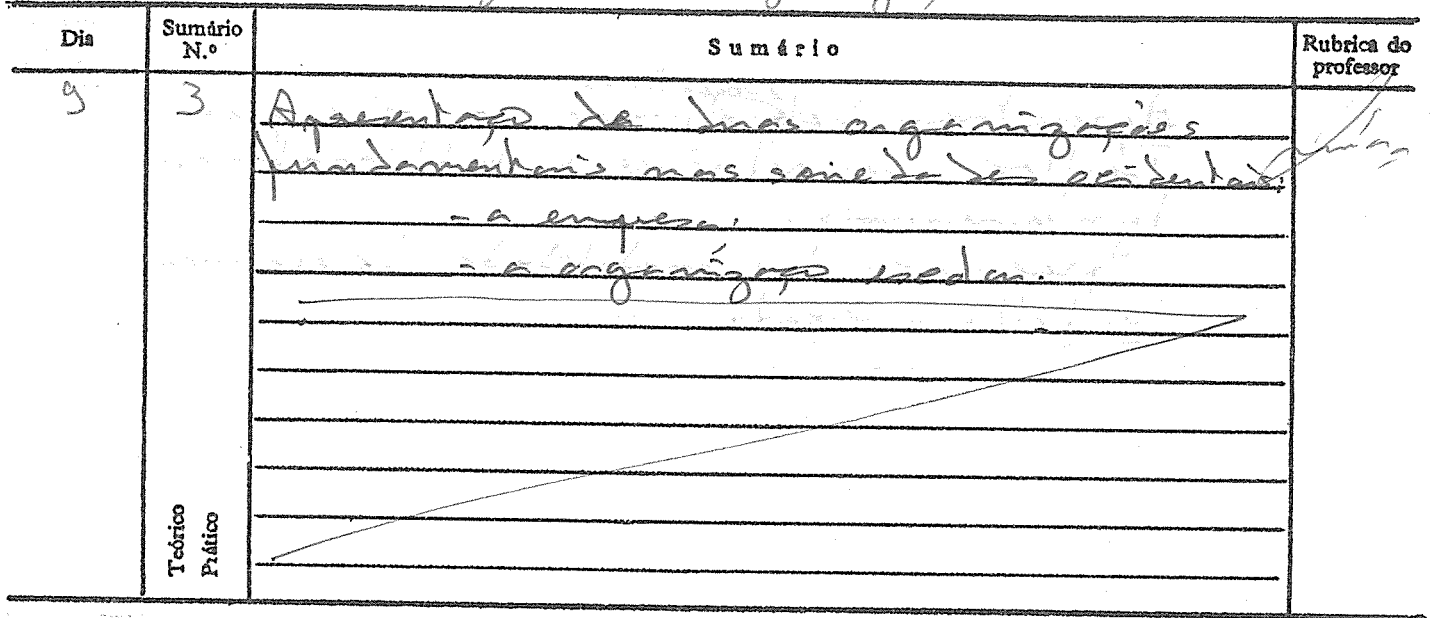 Dia
Sumário N.º
Sumário
Rubrica do professor
9
3
Apresentação de duas organizações
fundamentais nas sociedades ocidentais:
- a empresa.
- a organização escolar.
Teórico
Prático